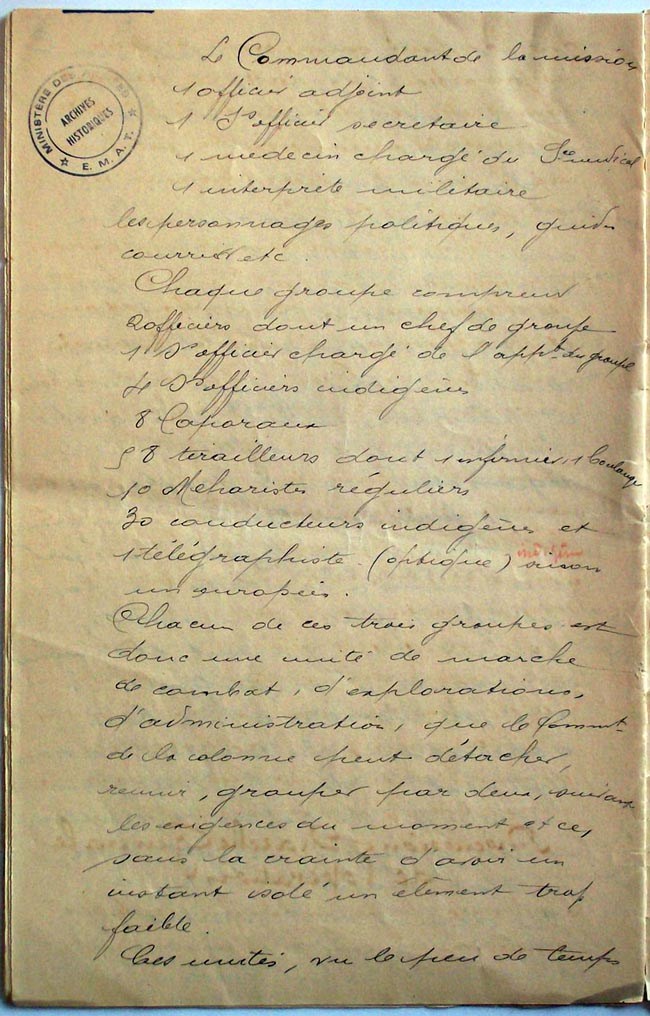 Le Commandant de la mission
1 officier adjoint
1 S/officier secretaire
1 medecin chargé du Sce medical
1 interprète militaire
les personnages politiques, guides
courriers etc.
Chaque groupe comprend
2 officiers dont un chef de groupe
1 S/officier chargé de l'appt du groupe
4 S/officiers indigènes
8 Caporaux
58 tirailleurs dont 1 infirmier, 1 boulanger
10 Meharistes réguliers
30 conducteurs indigènes et
1 télégraphiste (optique) indigène sinon
un européen.
Chacun de ces trois groupes est
donc une unité de marche
de combat, d'explorations,
d'administration, que le Commt
de la colonne peut détacher,
reunir, grouper par deux, suivant
les exigences du moment et ce,
sans la crainte d'avoir un
instant isolé un élèment trop
faible.
Ces unités, vu le peu de temps
MINISTÈRE DE
ARCHIVES
HISTORIQUES
E. M. A. T.